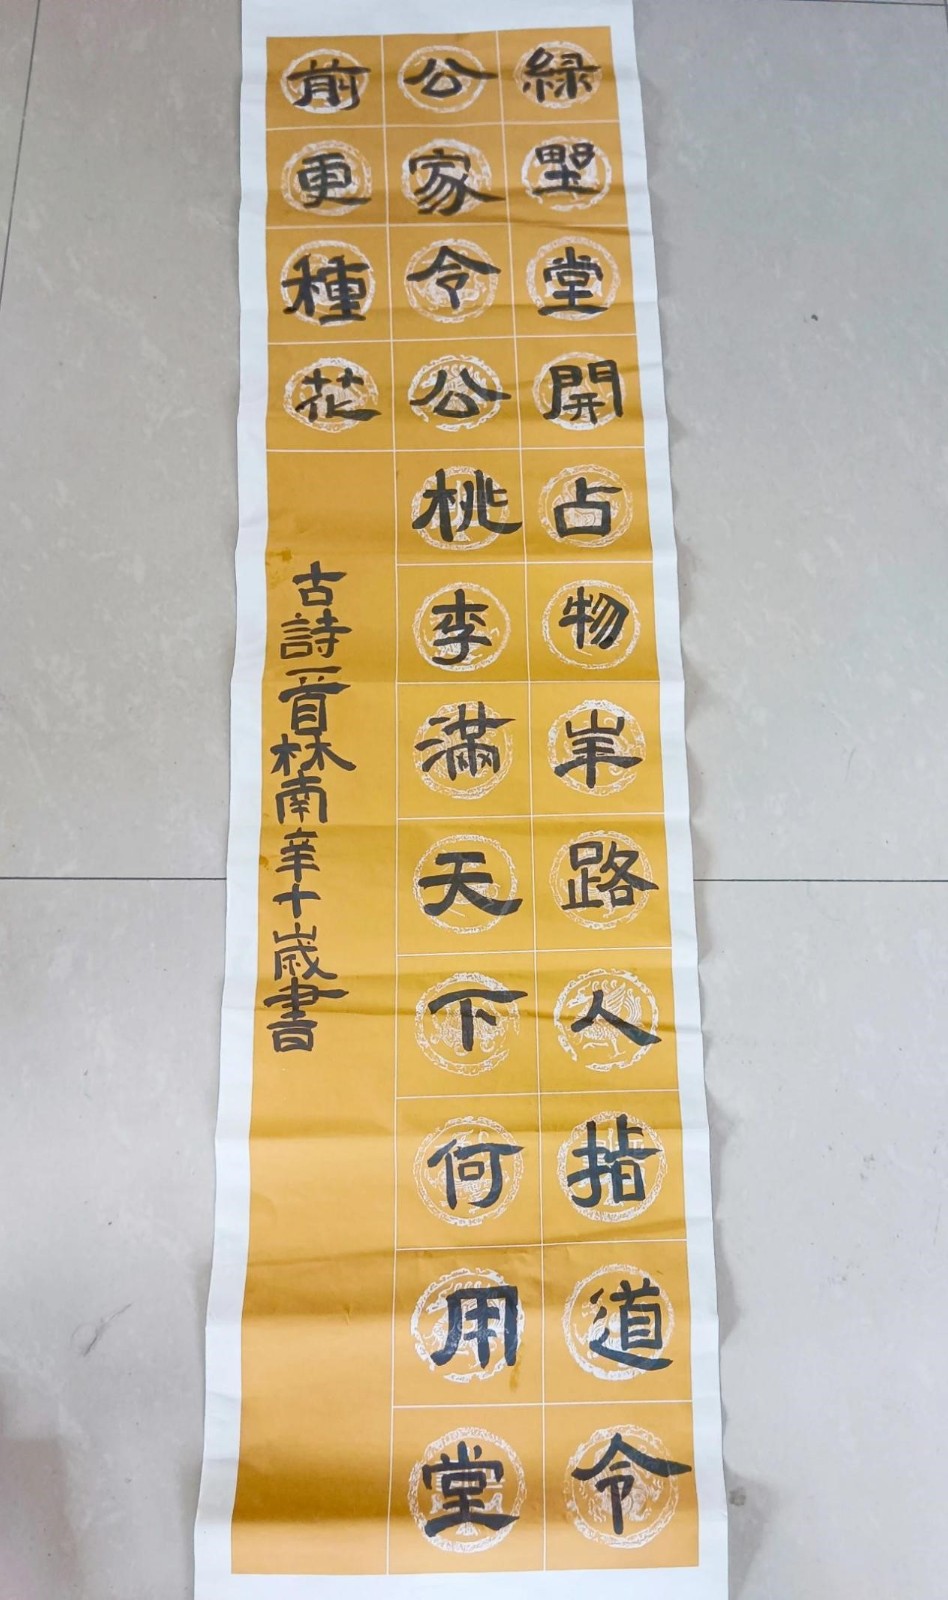 緑野堂開占物華路人指道令
公家令公桃李滿天下何用堂
前更種花
古詩一首林南辛十歲書